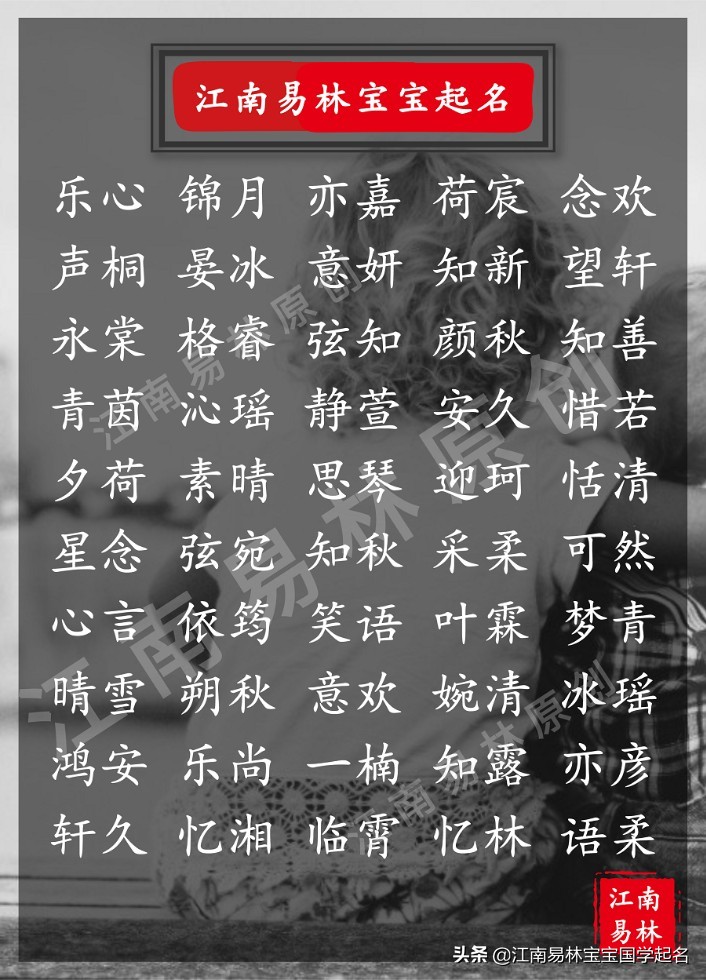 江南易林宝宝起名
乐心 锦月 亦嘉 荷宸 念欢
声桐 晏冰 意妍 知新 望轩
永棠 格睿 弦知 颜秋 知善
青茵 沁瑶 静萱 安久 惜若
夕荷 素晴 思琴 迎珂 恬清
星念 弦宛 知秋 采柔 可然
心言 依筠 笑语 叶霖 梦青
晴雪 朔秋 意欢 婉清 冰瑶
鸿安 乐尚 一楠 知露 亦彦
轩久 忆湘 临霄 忆林 语柔
江南易林原创
江南易林原创
江南易林原创
江南
易林
头条 @江南易林宝宝国学起名